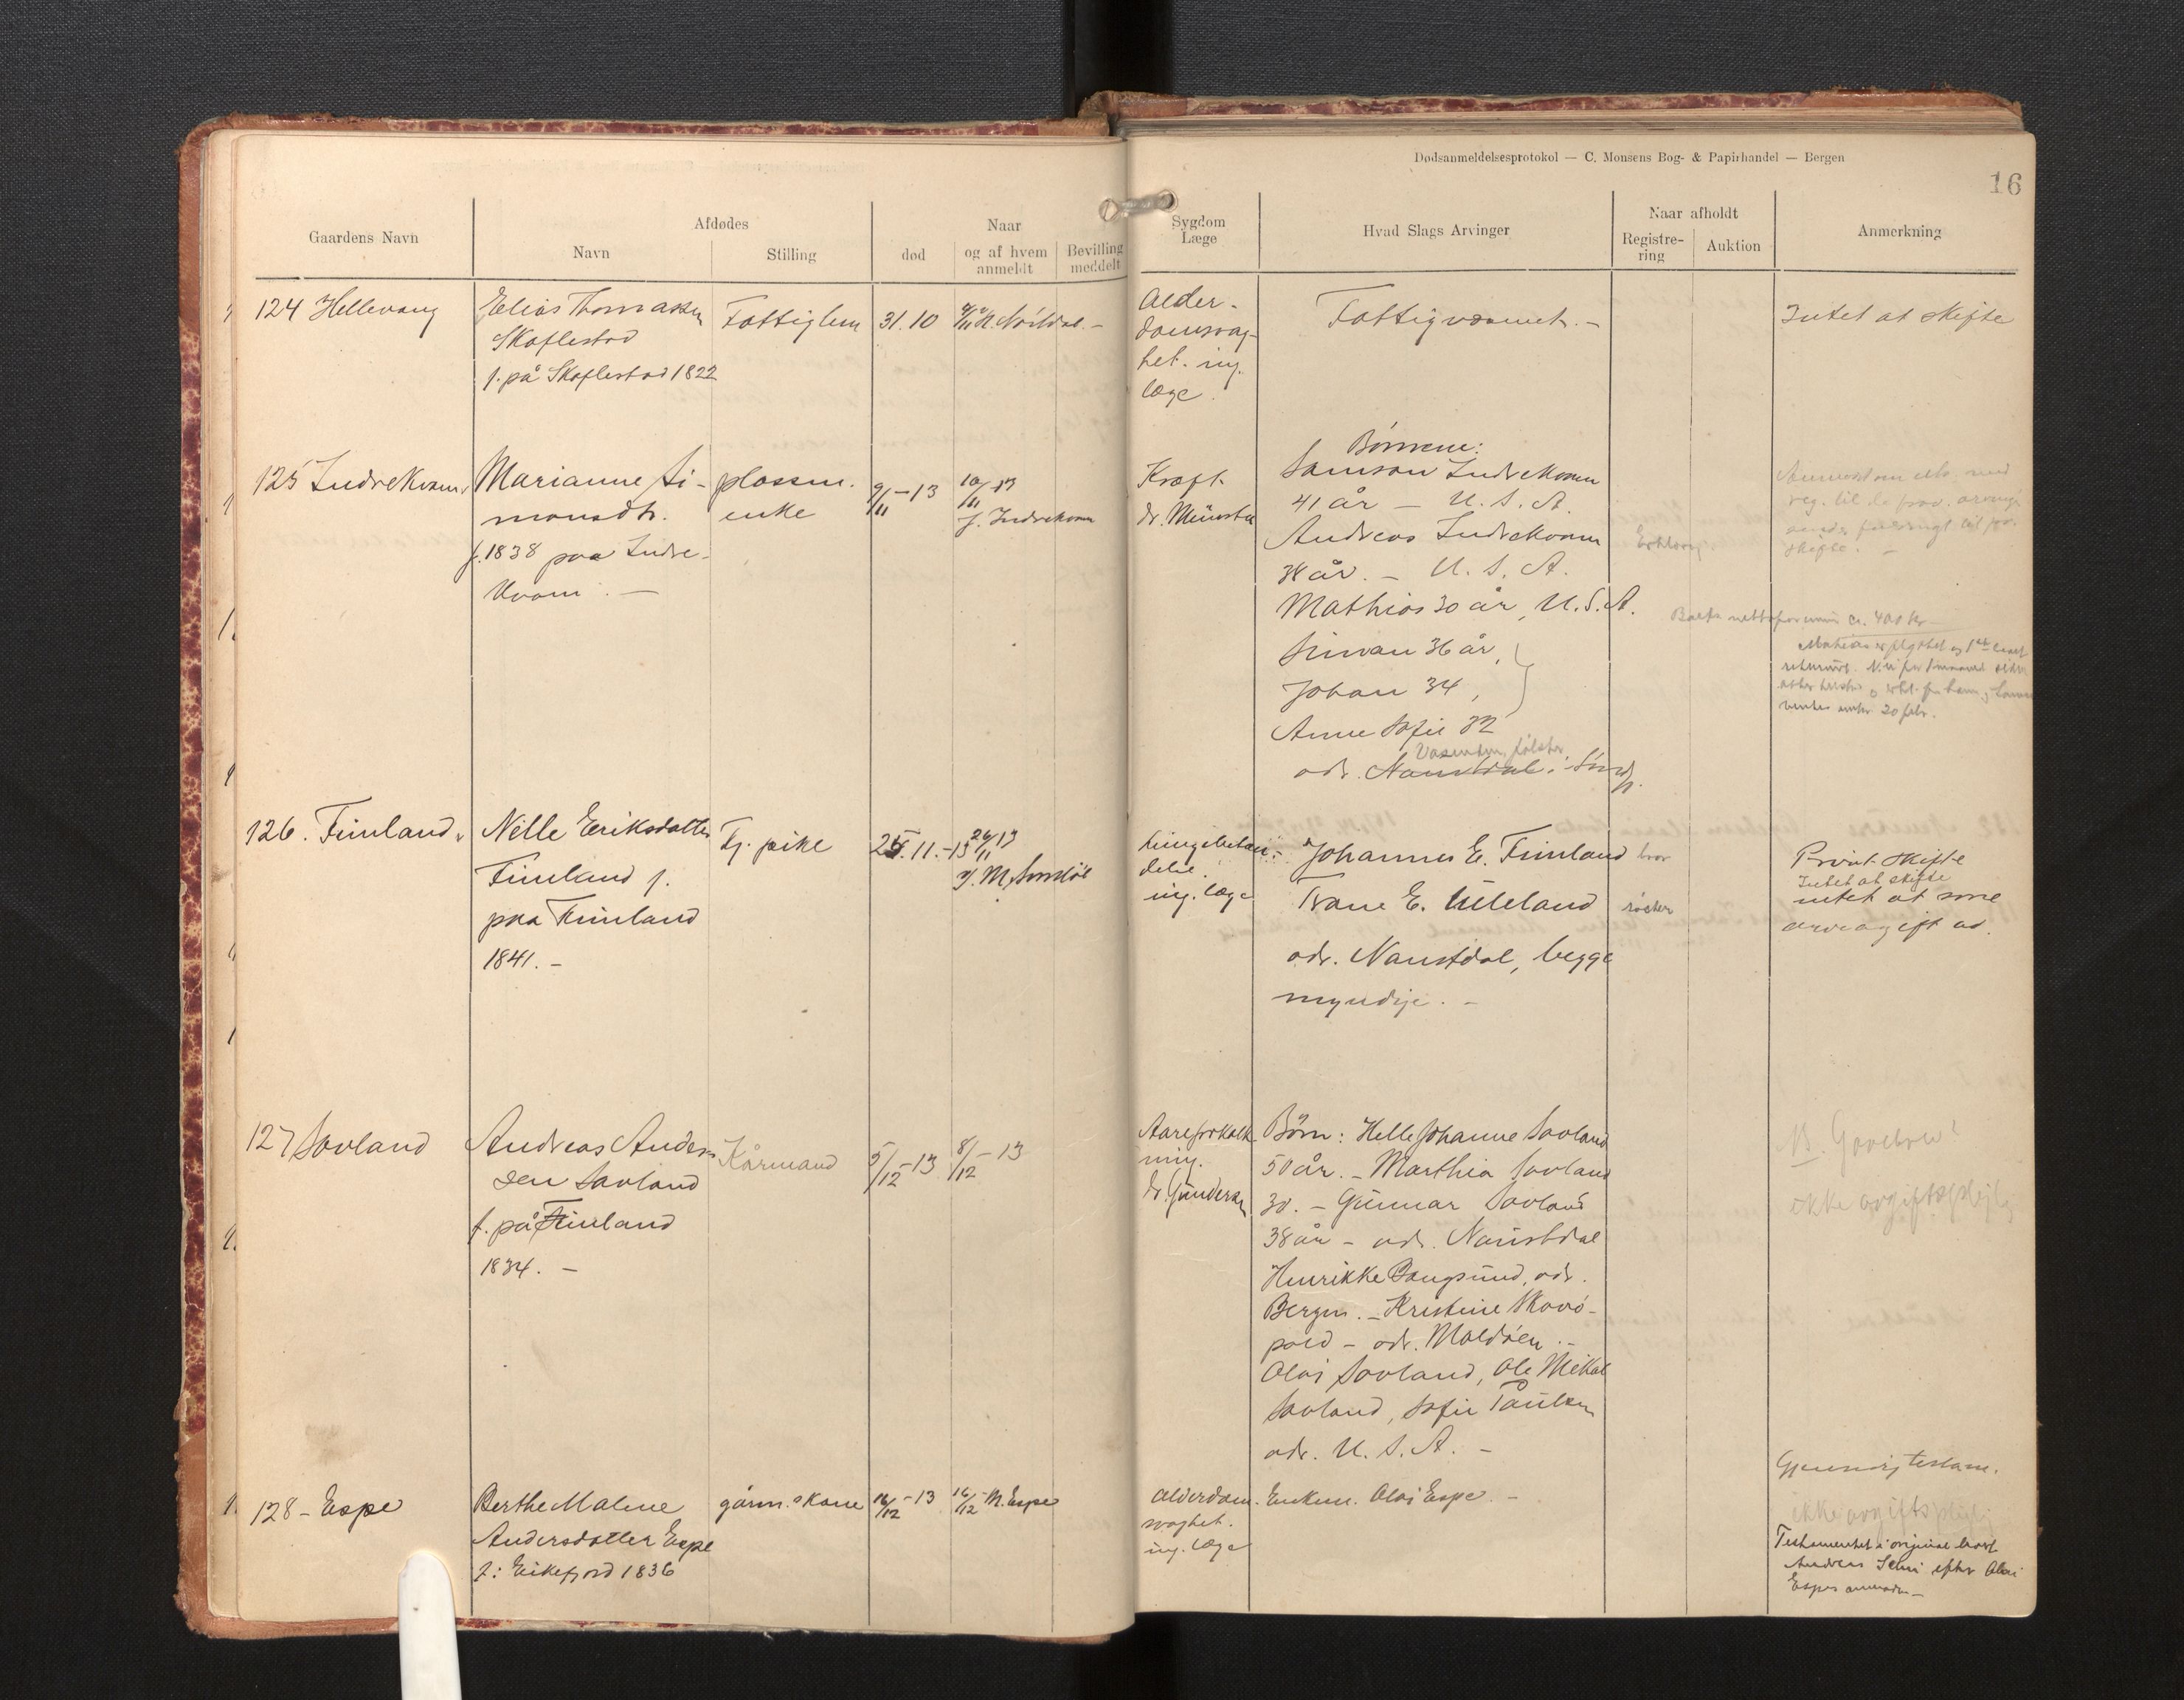 Dødsanmeldelsesprotokol — C. Monsens Bog- & Papirhandel — Bergen
16
Gaardens Navn
Afdødes
Navn
Stilling
Naar
død
og af hvem anmeldt
Bevilling meddelt
Sygdom
Læge
Hvad Slags Arvinger
Naar afholdt
Registre-
ring
Auktion
Anmerkning
124 Hellevang
Elias Thomassen
Skaflestad
f. på Skaflestad 1822
Fattiglem
31.10
Alder-
domsvag-
het. ing.
læge.
Fattigvæsenet. –
Intet at skifte
125 Indrekvam
Marianne Si-
monsdtr.
f. 1838 paa Indre-
kvam. –
plassm.
enke
9/11 – 13
10/11 13
J. Indrekvam
Kræft.
dr. Münster
Børnene:
Samson Indrekvam
41 år – U.S.A.
Andreas Indrekvam
38 år. – U.S.A.
Mathias 30 år, U.S.A.
36 år,
Johan 34,
Anne Sofie 32
adr. Naustdal i Søndf.
skifte. –
ca. 400 kr
126. Fimland.
Nille Eriksdatter
Fimland f.
paa Fimland
1841. –
Tj. pike
25.11.–13
26/11 13
ing. læge
Johannes E. Fimland bror
E. Ulleland søster
adr. Naustdal, begge
myndige. –
Privat skifte
Intet at skifte
intet at svare
arveavgift av.
127 Savland
Andreas Anders-
sen Savland
f. på Fimland
1834. –
Kårmand
5/12 – 13
8/12 – 13
Aareforkalk-
ning.
dr. Gundersen
Børn: Helle Johanne Savland
50 år. – Marthia Savland
30. – Gunnar Savland
38 år – adr. Naustdal
Henrikke Bangsund, adr.
Bergen. – Kristine
– adr. Maldøen. –
Olai Savland, Ole Mikal
Savland, Sofie Paulsen
adr. U.S.A. –
NB. Gavebrev?
ikke avgiftspligtig
128 – Espe
Berthe Malene
Andersdatter Espe
f. i Eikefjord 1836
gårm.s kone
16/12 – 13
16/12 – M. Espe
Alderdom-
svaghet.
ing. læge
Enkem. Olai Espe. –
Gjensidig testam.
ikke avgiftspligtig
Testamentet i original
Andreas efter Olai
Espes